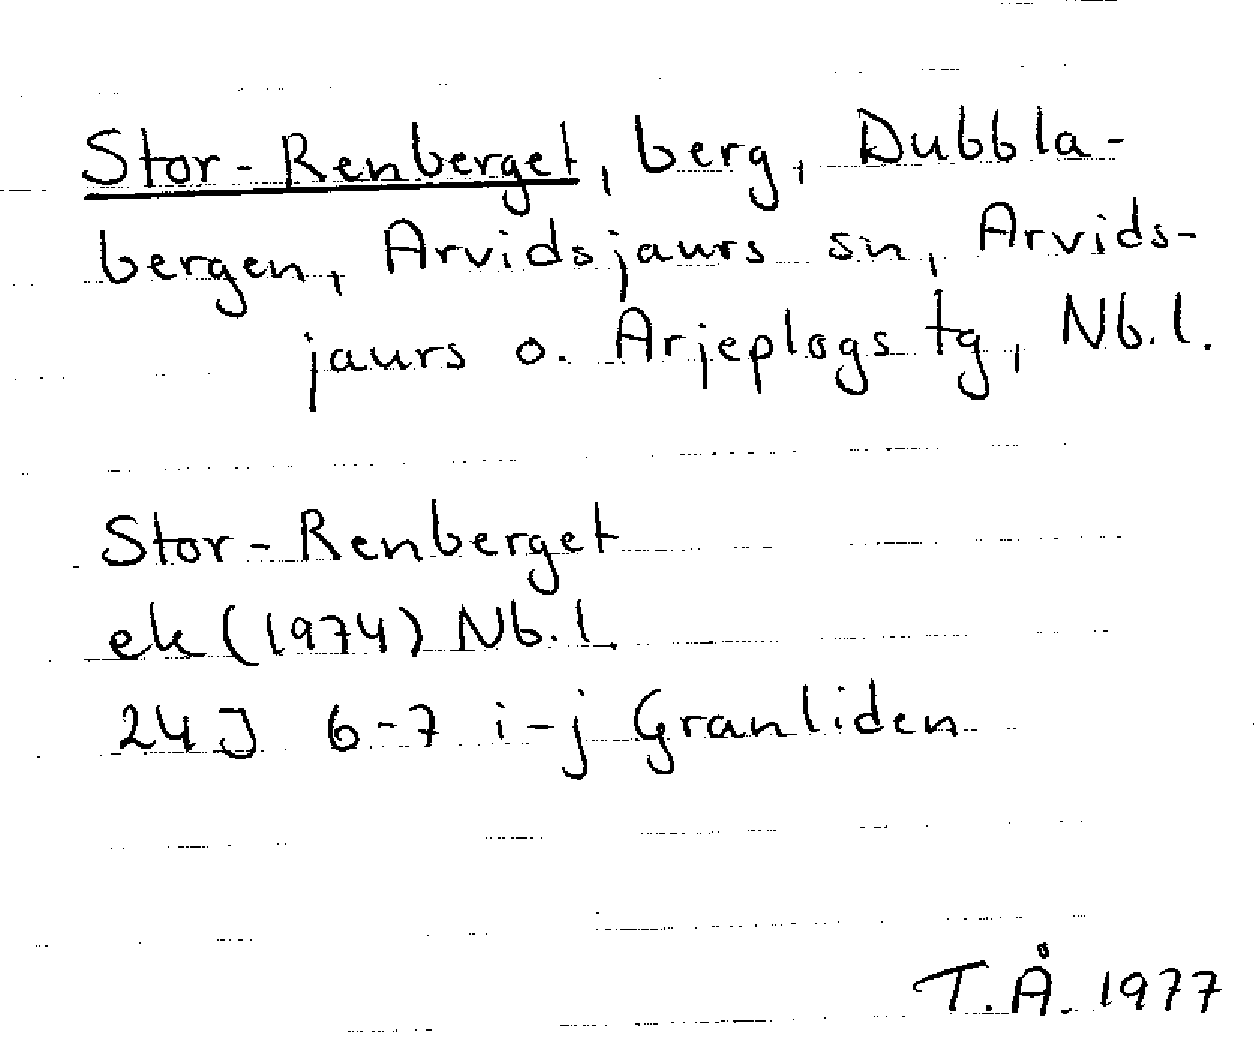 Stor-Renberget, berg, Dubbla-
bergen, Arvidsjaurs sn, Arvids-
jaurs o. Arjeplogs tg, Nb.l.
Stor-Renberget
ek (1974) Nb.l.
24J 6-7 i-j Granliden
T.Å. 1977